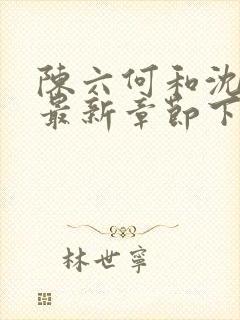 陈六何和沈
最新章节下
林世寧